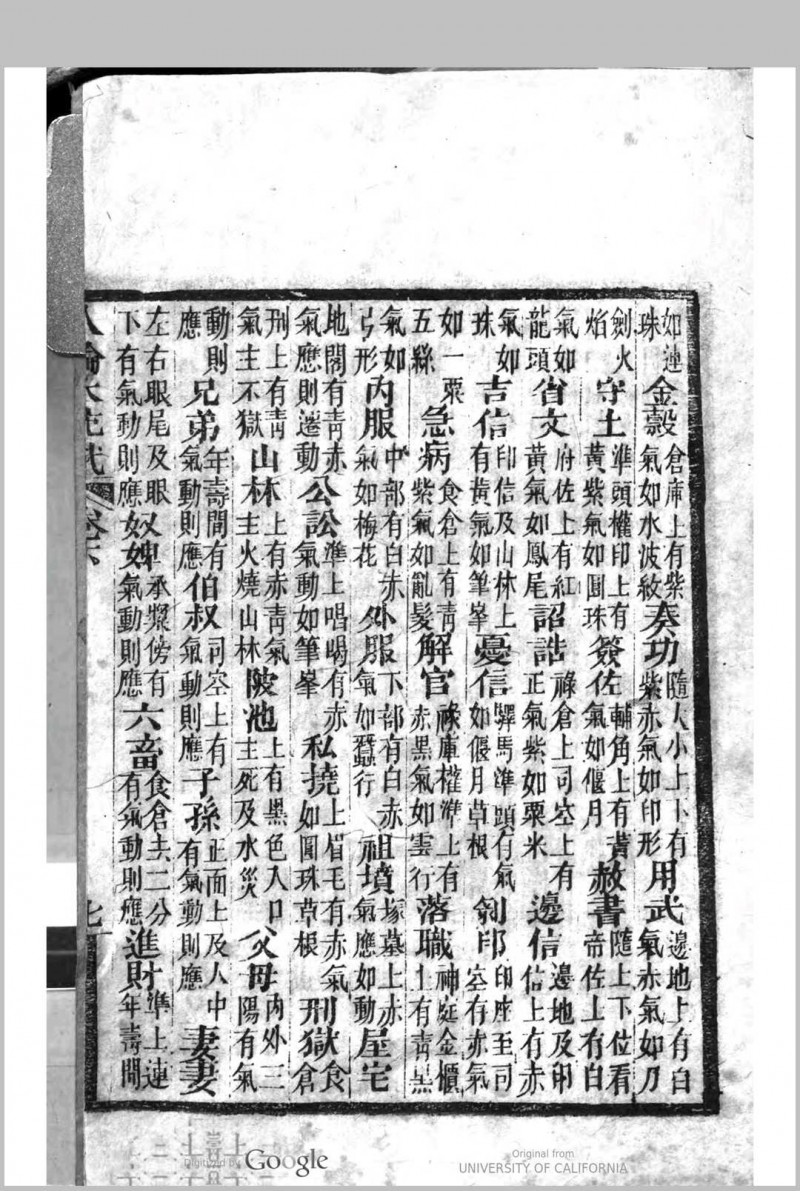 如連珠金穀倉庫上有紫氣如水波紋奏功隨人小上卜有紫赤氣如印形用武邊地上有白氣赤氣如刀
劍火焰守土準頭權印上有黃紫氣如圓珠簽佐左輔角上有青氣如偃月赦書隨上下位看帝佐上有白
氣如龍頭省文府佐上有紅黃氣如鳳尾詔誥祿倉上司空上有正氣紫如粟米邊信邊地及印信上有赤
氣如珠吉信印信及山林上有黃氣如筆峯憂信驛馬準頭有氣如偃月草根劍印印座至司空有赤氣
如一粟五綵急病食倉上有青紫氣如亂髮解官祿庫權準上有赤黑氣如雲行落職神庭金櫃上有青黑
氣如弓形內服中部有白赤氣如梅花外服下部有白赤氣如蠶行祖墳塚墓上赤氣應如動屋宅
地閣有青赤氣應則遷動公訟準上唱喝有赤氣動如筆峯私撓上眉毛有赤氣如圓珠草根刑獄食倉
刑上有青氣主不獄山林上有赤青氣主火燒山林陂池上有黑色入口主死及水災父母內外三陽有氣
動則應兄弟年壽間有氣動則應伯叔司空上有氣動則應子孫正面上及人中有氣動則應妻妻
左右眼尾及眼下有氣動則應奴婢承漿傍有氣動則應六畜食倉共二分有氣動則應進財準上連年壽間
人倫大統賦 卷下
Digitized by Google
Original from
UNIVERSITY OF CALIFORNIA